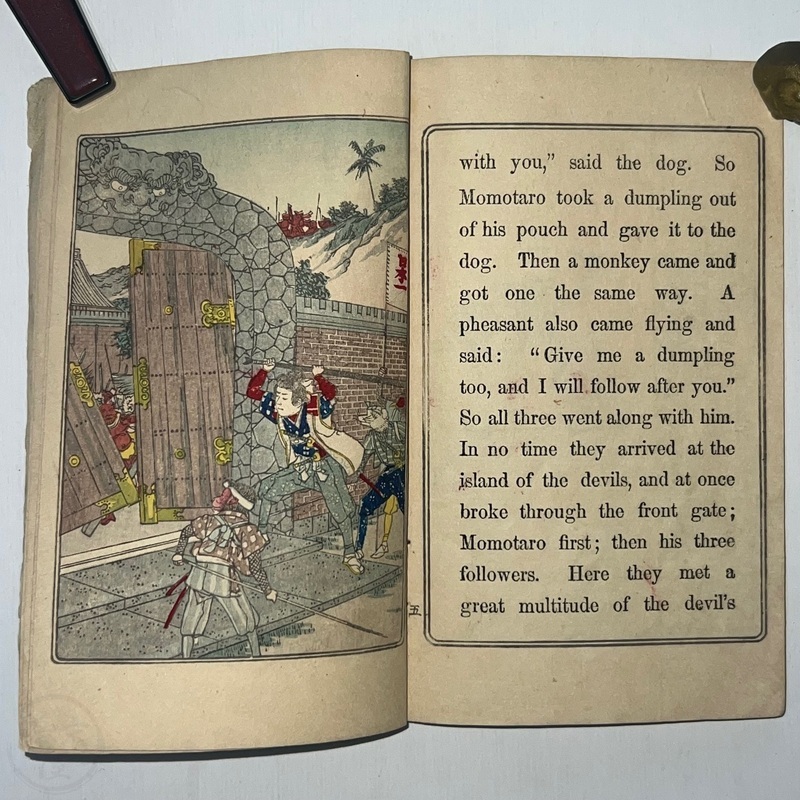 日本一
with you,” said the dog. So
Momotaro took a dumpling out
of his pouch and gave it to the
dog. Then a monkey came and
got one the same way. A
pheasant also came flying and
said: “Give me a dumpling
too, and I will follow after you.”
So all three went along with him.
In no time they arrived at the
island of the devils, and at once
broke through the front gate;
Momotaro first; then his three
followers. Here they met a
great multitude of the devil’s
五